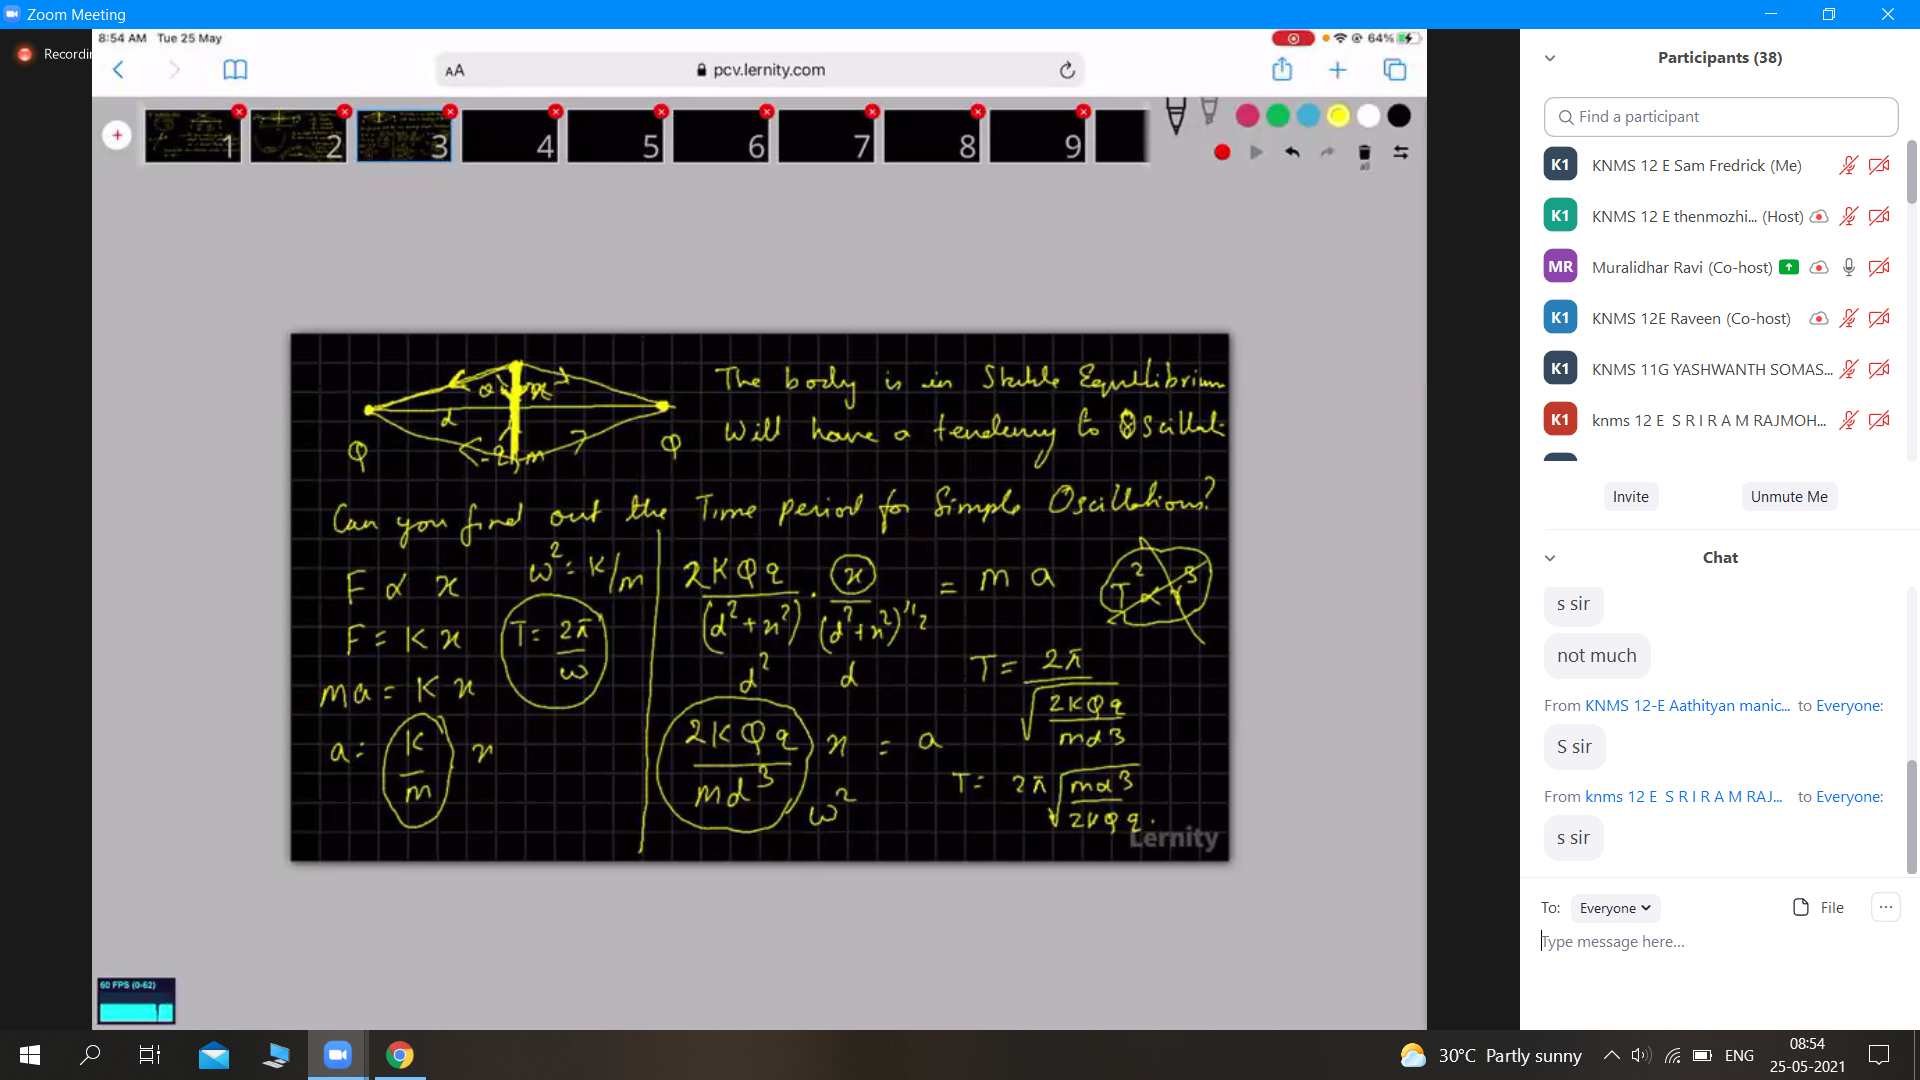 Zoom Meeting
Recordin
8:54 AM Tue 25 May
64%
AA
pcv.lernity.com
1 2 3 4 5 6 7 8 9
all
The body is in Stable Equilibrium
Will have a tendency to Oscillat
α x
d
Q Q
-q, m
Can you find out the Time period for Simple Oscillations?
F ∝ x
ω² = K/m
F = K x
T = 2π/ω
ma = K x
a = K/m x
2KQq/(d²+x²) · x/(d²+x²)^1/2 = m a
d² d
2KQq/md³ x = a
ω²
T² ∝ r³
T = 2π/√(2KQq/md³)
T = 2π√(md³/2KQq).
Lernity
60 FPS (0-62)
Participants (38)
Find a participant
K1 KNMS 12 E Sam Fredrick (Me)
K1 KNMS 12 E thenmozhi... (Host)
MR Muralidhar Ravi (Co-host)
K1 KNMS 12E Raveen (Co-host)
K1 KNMS 11G YASHWANTH SOMAS...
K1 knms 12 E S R I R A M RAJMOH...
Invite
Unmute Me
Chat
s sir
not much
From KNMS 12-E Aathityan manic... to Everyone:
S sir
From knms 12 E S R I R A M RAJ... to Everyone:
s sir
To: Everyone
File
Type message here...
30°C Partly sunny
ENG
08:54
25-05-2021